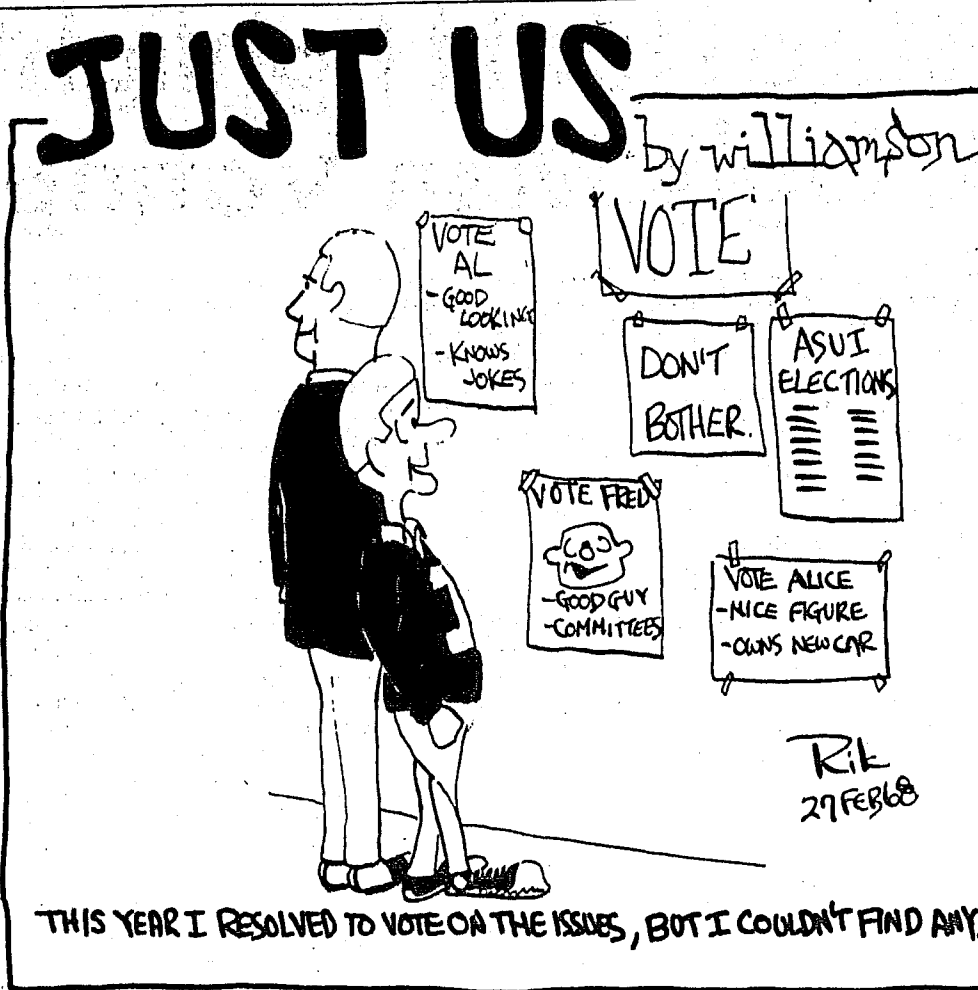 JUST US
by williamson
VOTE
AL
-GOOD
LOOKING
-KNOWS
JOKES
VOTE
DON'T
BOTHER.
ASUI
ELECTIONS
VOTE FRED
-GOOD GUY
-COMMITTEES
VOTE ALICE
-NICE FIGURE
-OWNS NEW CAR
Rik
27 FEB 68
THIS YEAR I RESOLVED TO VOTE ON THE ISSUES, BUT I COULDN'T FIND ANY.